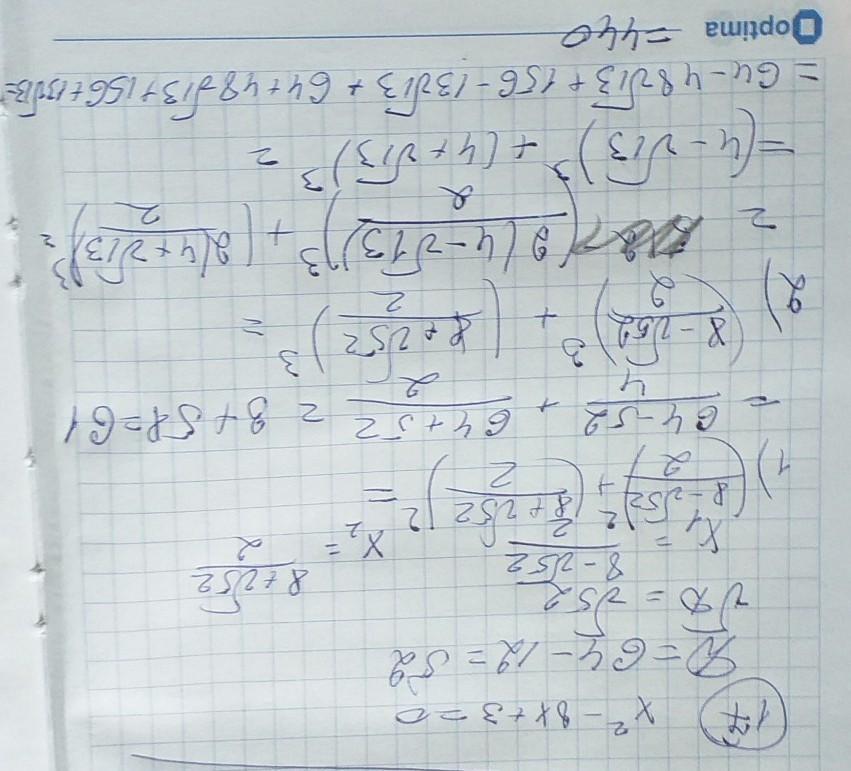 17 x² - 8x + 3 = 0
D = 64 - 12 = 52
√D = √52
x₁ = (8 - √52)/2 x₂ = (8 + √52)/2
1) ((8 - √52)/2)² + ((8 + √52)/2)² =
= (64 - 52)/4 + (64 + 52)/2 = 3 + 58 = 61
2) ((8 - √52)/2)³ + ((8 + √52)/2)³ =
= (2(4 - √13)/2)³ + (2(4 + √13)/2)³ =
= (4 - √13)³ + (4 + √13)³ =
= 64 - 48√13 + 156 - 13√13 + 64 + 48√13 + 156 + 13√13 =
= 440
optima